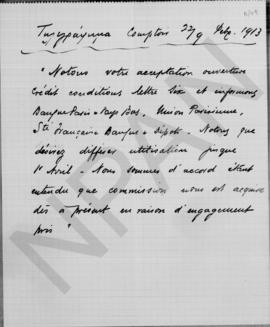 Τηλεγράφημα Comptoir 22/9 Febr. 1913
"Notons votre acceptation ouverture
Crédit conditions lettre Six et informons
Banque Paris-Pays Bas, Union Parisienne,
Sté Française Banque - Dépôts - Notons que
désirez différer utilisation jusque
1er Avril - Nous sommes d'accord étant
entendu que commission nous est acquise
dès à présent en raison d'engagement
pris"